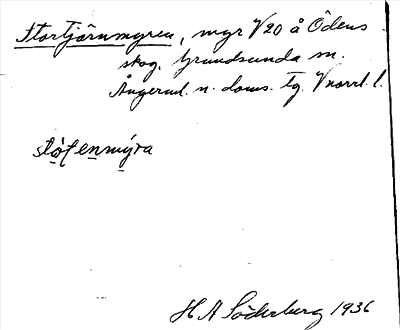 Stortjärnmyren, myr V20 å Ödens
skog. Grundsunda sn.
Ångerml. n. doms. tg. Vnorrl. l.
stò̤ʈen̠mýra
H A Söderberg 1936